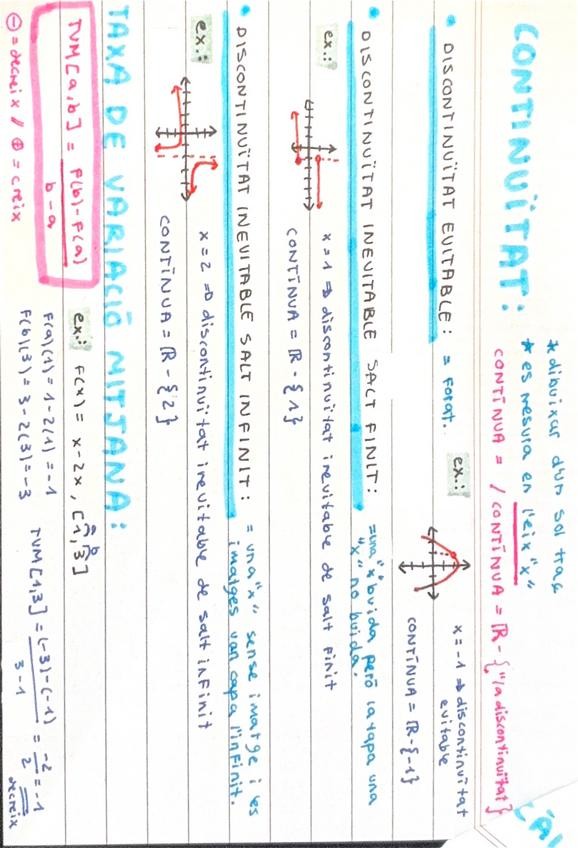 CONTINUÏTAT:
*dibuixar d'un sol traç
*es mesura en l'eix "x"
CONTÍNUA = / CONTÍNUA = ℝ - {"la discontinuïtat}
• DISCONTINUÏTAT EVITABLE: = Forat.
ex.:
x = -1 ⇒ discontinuïtat
evitable
CONTÍNUA = ℝ - {-1}
• DISCONTINUÏTAT INEVITABLE SALT FINIT:
= una "x" buida però la tapa una
"x" no buida.
ex.:
x = 1 ⇒ discontinuitat inevitable de salt finit
CONTÍNUA = ℝ - {1}
• DISCONTINUÏTAT INEVITABLE SALT INFINIT:
= una "x" sense imatge i les
imatges van capa l'infinit.
ex.:
x = 2 ⇒ discontinuitat inevitable de salt infinit
CONTÍNUA = ℝ - {2}
TAXA DE VARIACIÓ MITJANA:
TVM[a,b] = F(b)-F(a)
b-a
ex.: F(x) = x-2x, [1,3]
a b
F(a)(1) = 1-2(1) = -1
F(b)(3) = 3-2(3) = -3
TVM[1,3] = (-3)-(-1) = -2 = -1
3-1 2 decreix
⊖ = decreix // ⊕ = creix